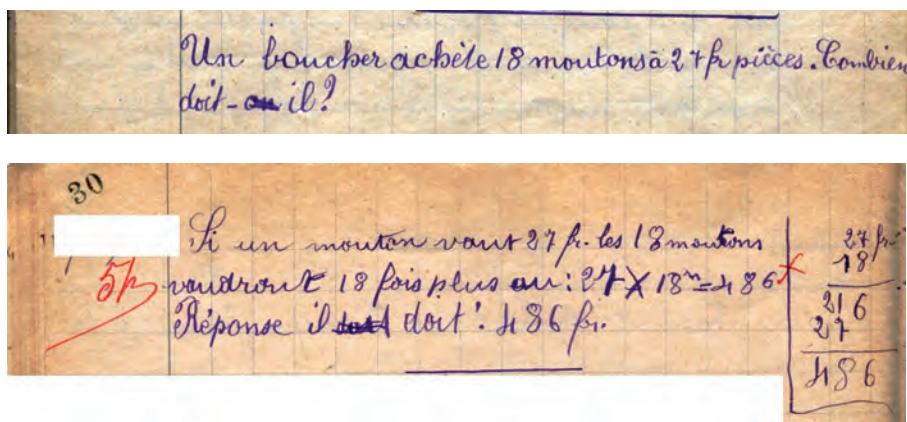 Un boucher achète 18 moutons à 27 fr pièces. Combien
doit-on il?
30
5p
Si un mouton vaut 27 fr. les 18 moutons
vaudront 18 fois plus ou: 27 X 18ᵐ = 486
Réponse il doit doit: 486 fr.
27 fr
18
216
27
486